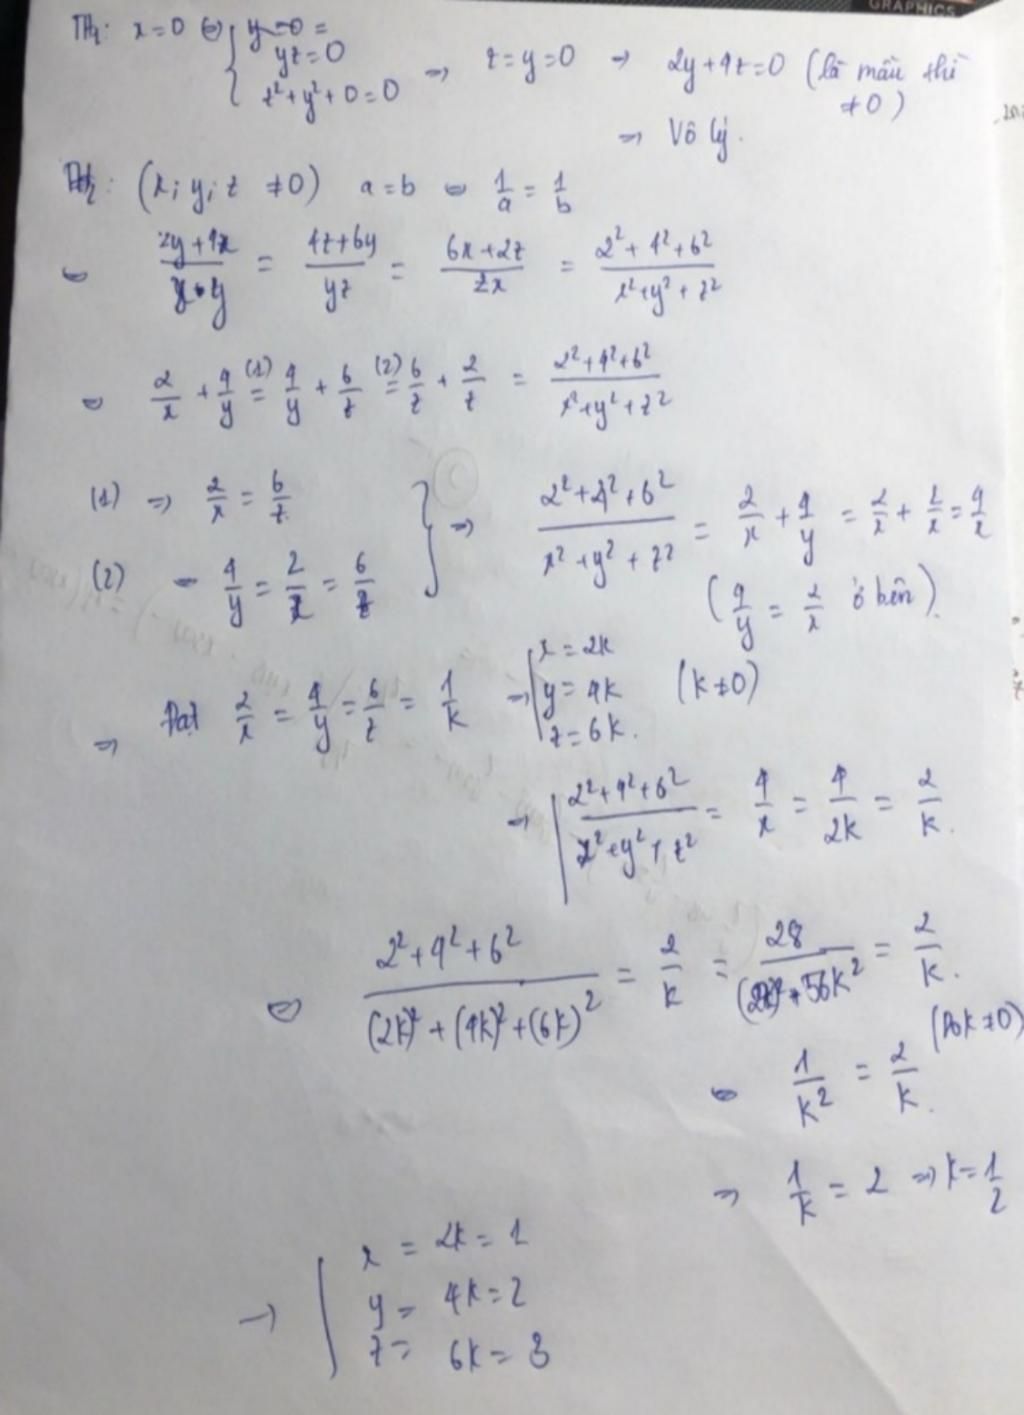 GRAPHICS
TH₁: x=0 ⇔ { y=0 =
yz=0
z²+y²+0=0 ⇒ z=y=0 → 2y+4z=0 (là mẫu thì ≠0)
⇒ Vô lý.
TH₂: (x; y; z ≠0) a=b ⇔ 1/a = 1/b
⇔ (2y+4x)/(x.y) = (4z+6y)/(yz) = (6x+2z)/(zx) = (2²+4²+6²)/(x²+y²+z²)
⇔ 2/x + 4/y =(1) 4/y + 6/z =(2) 6/z + 2/z = (2²+4²+6²)/(x²+y²+z²)
(1) ⇒ 2/x = 6/z
(2) – 4/y = 2/x = 6/z } ⇒ (2²+4²+6²)/(x²+y²+z²) = 2/x + 4/y = 2/x + 2/x = 4/x
(4/y = 2/x ở bên).
⇒ Đặt 2/x = 4/y = 6/z = 1/k → { x=2k
y=4k (k≠0)
z=6k.
→ | (2²+4²+6²)/(x²+y²+z²) = 4/x = 4/2k = 2/k.
⇔ (2²+4²+6²)/((2k)²+(4k)²+(6k)²) = 2/k = 28/56k² = 2/k.
(Do k≠0)
⇔ 1/k² = 2/k.
⇒ 1/k = 2 ⇒ k=1/2
→ { x = 2k = 1
y = 4k = 2
z = 6k = 3